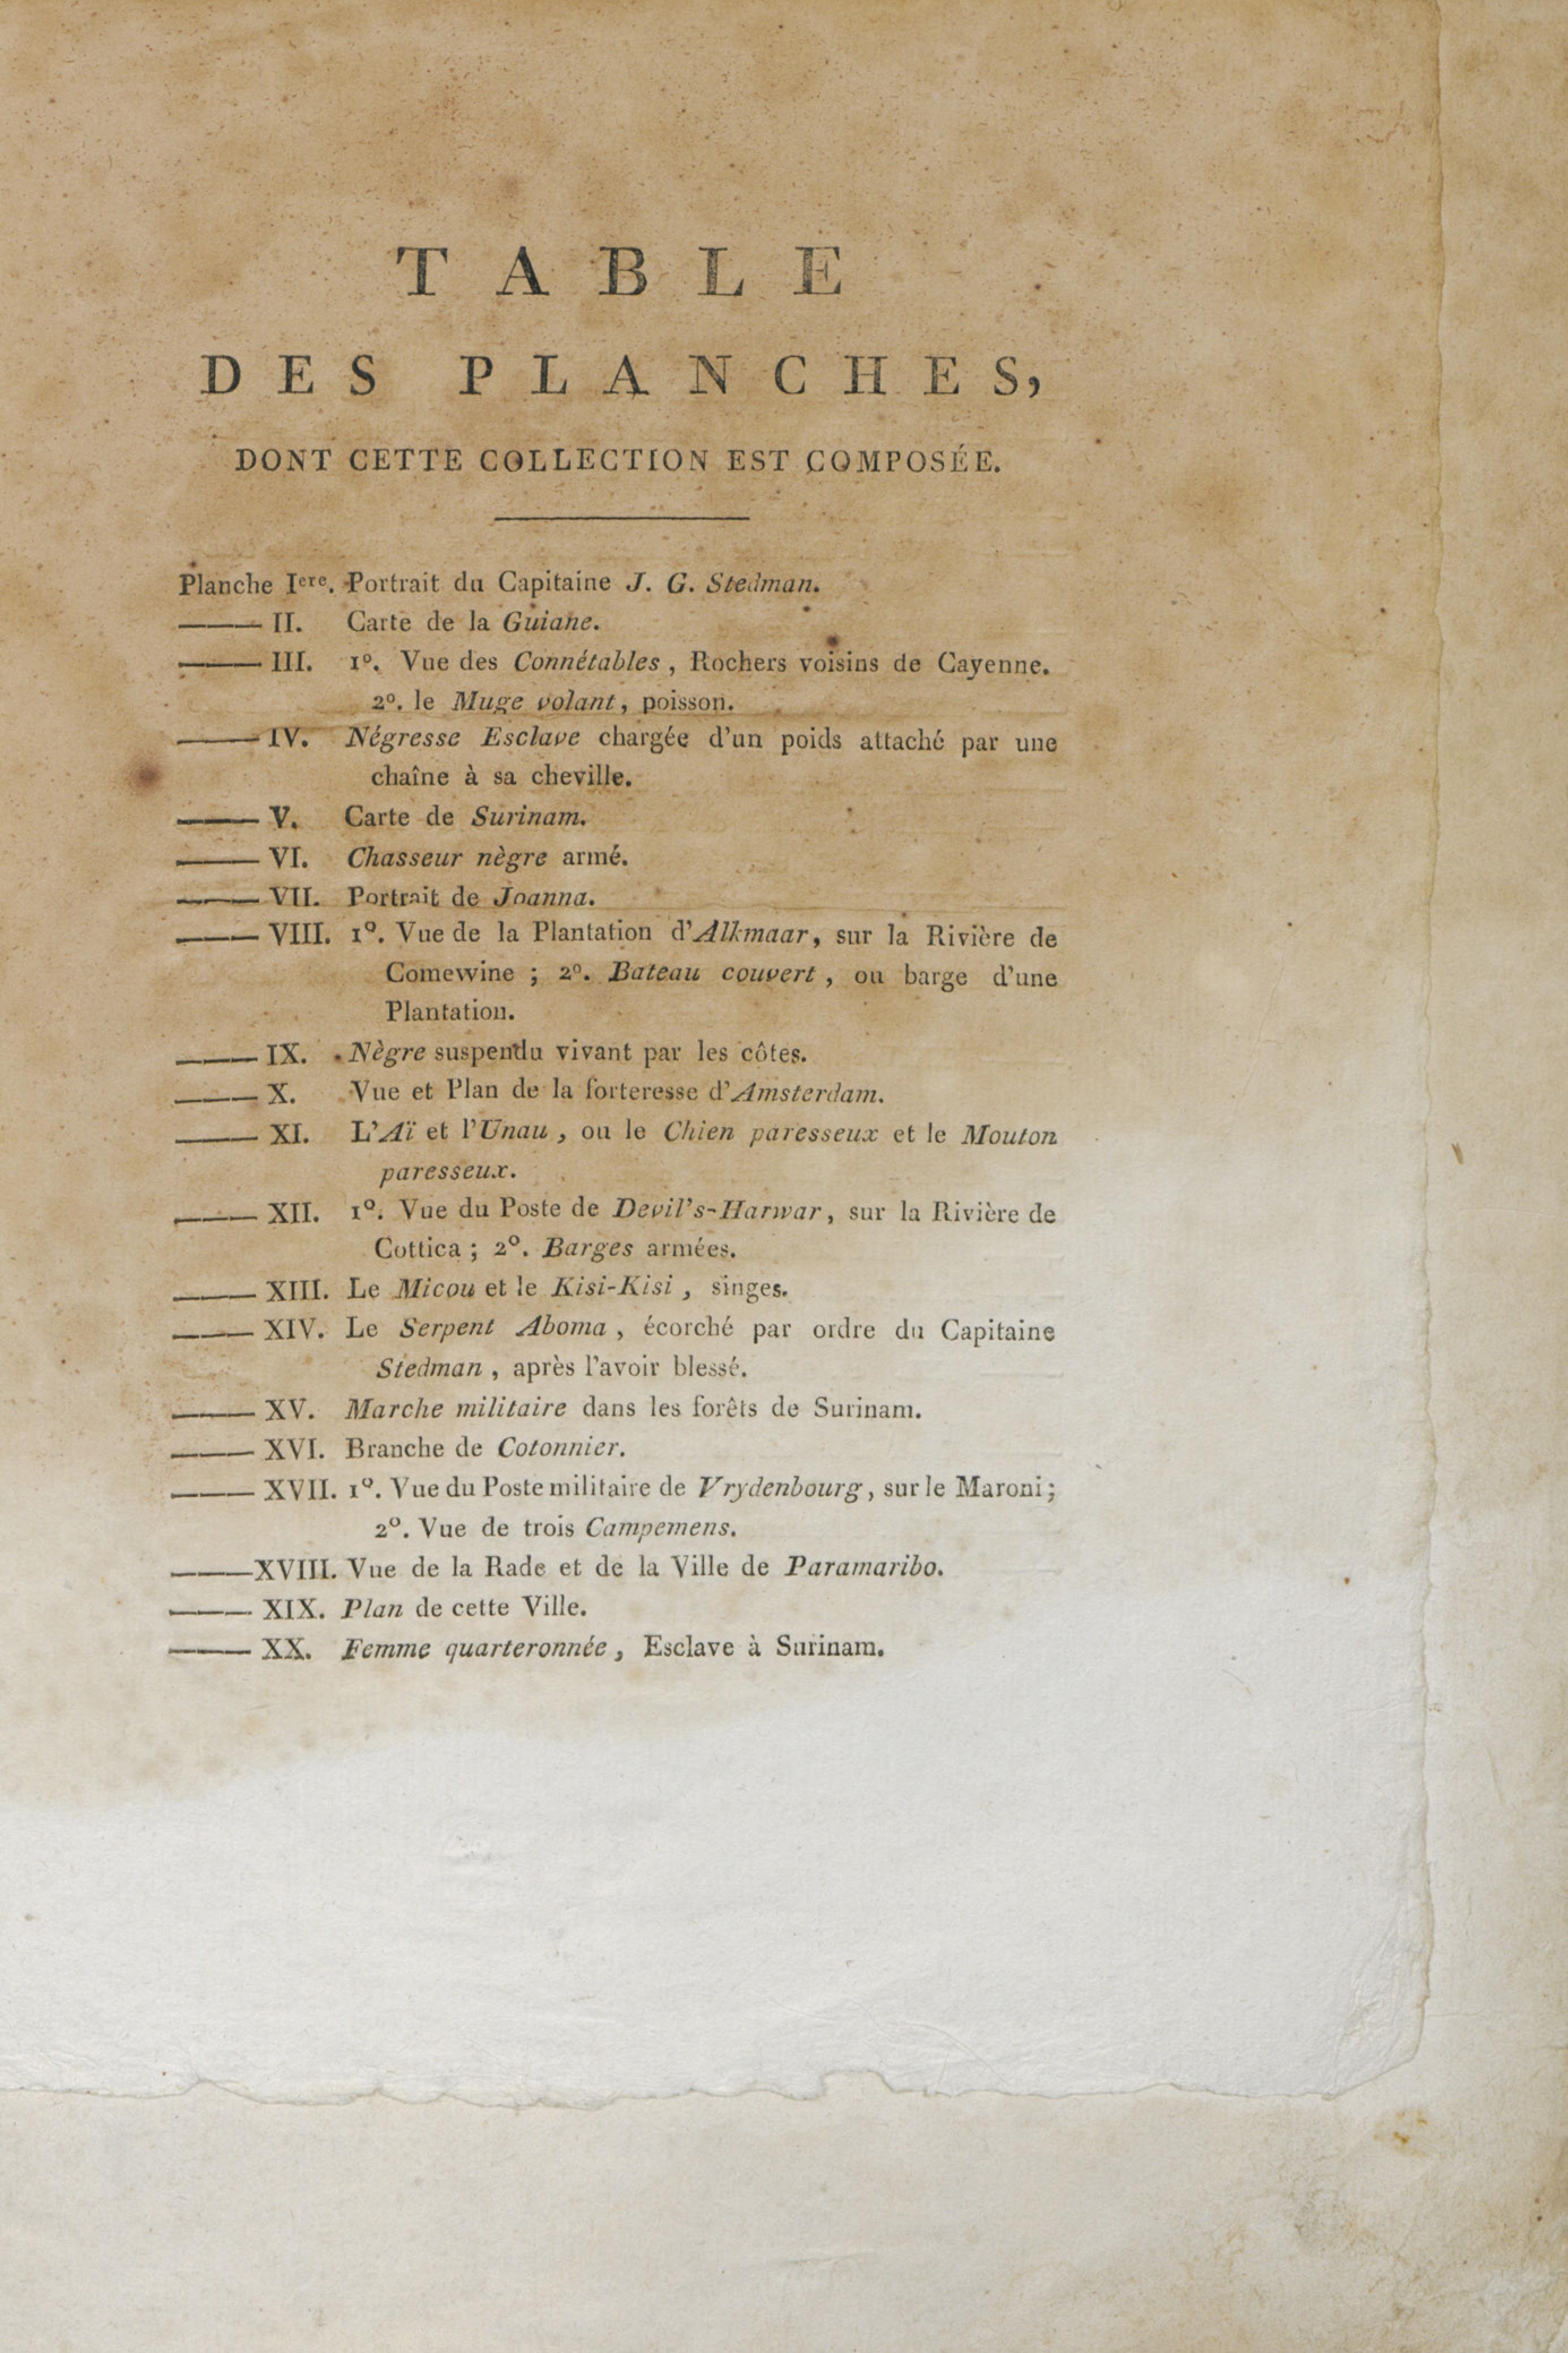 TABLE
DES PLANCHES,
DONT CETTE COLLECTION EST COMPOSÉE.
Planche Iere. Portrait du Capitaine J. G. Stedman.
—— II. Carte de la Guiane.
—— III. 1º. Vue des Connétables, Rochers voisins de Cayenne.
2º. le Muge volant, poisson.
—— IV. Négresse Esclave chargée d'un poids attaché par une
chaîne à sa cheville.
—— V. Carte de Surinam.
—— VI. Chasseur nègre armé.
—— VII. Portrait de Joanna.
—— VIII. 1º. Vue de la Plantation d'Alkmaar, sur la Rivière de
Comewine ; 2º. Bateau couvert, ou barge d'une
Plantation.
—— IX. Nègre suspendu vivant par les côtes.
—— X. Vue et Plan de la forteresse d'Amsterdam.
—— XI. L'Aï et l'Unau, ou le Chien paresseux et le Mouton
paresseux.
—— XII. 1º. Vue du Poste de Devil's-Harwar, sur la Rivière de
Cottica ; 2º. Barges armées.
—— XIII. Le Micou et le Kisi-Kisi, singes.
—— XIV. Le Serpent Aboma, écorché par ordre du Capitaine
Stedman, après l'avoir blessé.
—— XV. Marche militaire dans les forêts de Surinam.
—— XVI. Branche de Cotonnier.
—— XVII. 1º. Vue du Poste militaire de Vrydenbourg, sur le Maroni ;
2º. Vue de trois Campemens.
—— XVIII. Vue de la Rade et de la Ville de Paramaribo.
—— XIX. Plan de cette Ville.
—— XX. Femme quarteronnée, Esclave à Surinam.